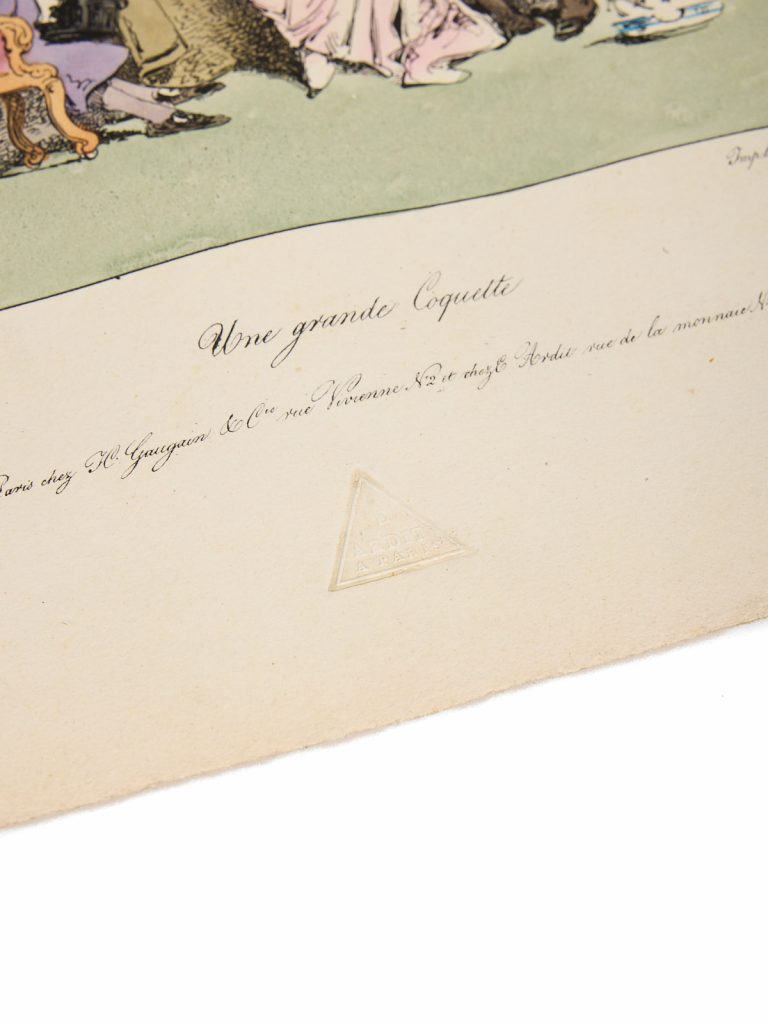 Imp.
Une grande Coquette
Paris chez H. Gaugain & Cie rue Vivienne No 2 et chez E Ardit rue de la monnaie N
E
ARDIT
A PARIS